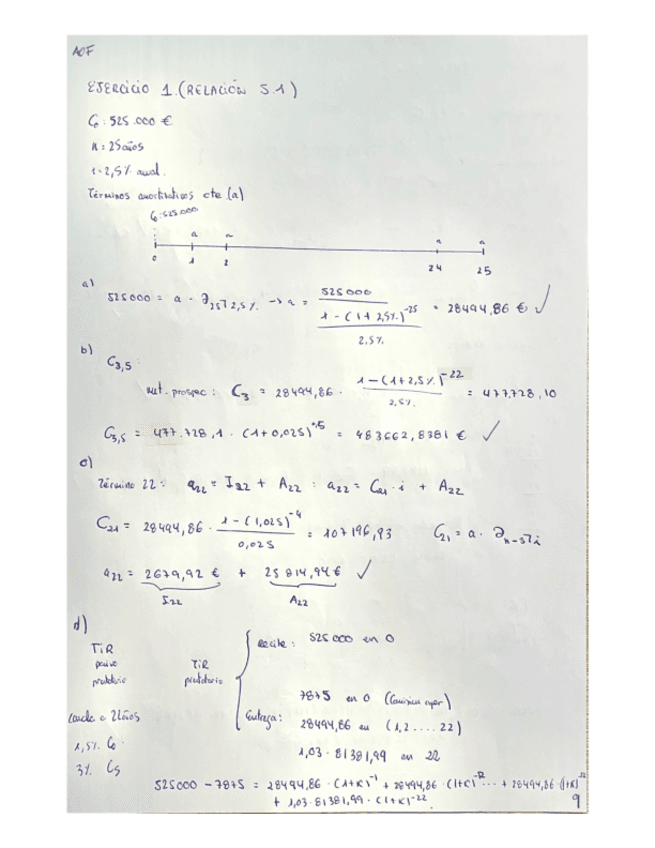 AOF
EJERCICIO 1. (RELACIÓN 5.1)
C₀: 525.000 €
n = 25 años
i = 2,5% anual.
Términos amortizativos cte (a)
C₀: 525.000
a a a a
0 1 2 24 25
a)
525000 = a · a25⌉2,5% -> a = 525000 / ((1 - (1 + 2,5%)^-25) / 2,5%) = 28494,86 € ✓
b)
C3,5 :
Met. prospec: C₃ = 28494,86 · (1 - (1 + 2,5%)^-22) / 2,5% = 477.728,10
C3,5 = 477.728,1 · (1+0,025)^0,5 = 483662,8381 € ✓
c)
Término 22: a22 = I22 + A22 : a22 = C21 · i + A22
C21 = 28494,86 · (1 - (1,025)^-4) / 0,025 = 107196,93 C21 = a · an-s⌉i
a22 = 2679,92 € + 25814,94 € ✓
I22 A22
d)
TiR
prestatario
TiR
prestatario
Recibe: 525000 en 0
Entrega:
7875 en 0 (Comisión aper)
28494,86 en (1,2 .... 22)
1,03 · 81381,99 en 22
1,5% C₀
3% Cs
525000 - 7875 = 28494,86 · (1+K)^-1 + 28494,86 · (1+K)^-2 ... + 28494,86 · (1+K)^-22
+ 1,03 · 81381,99 · (1+K)^-22
9